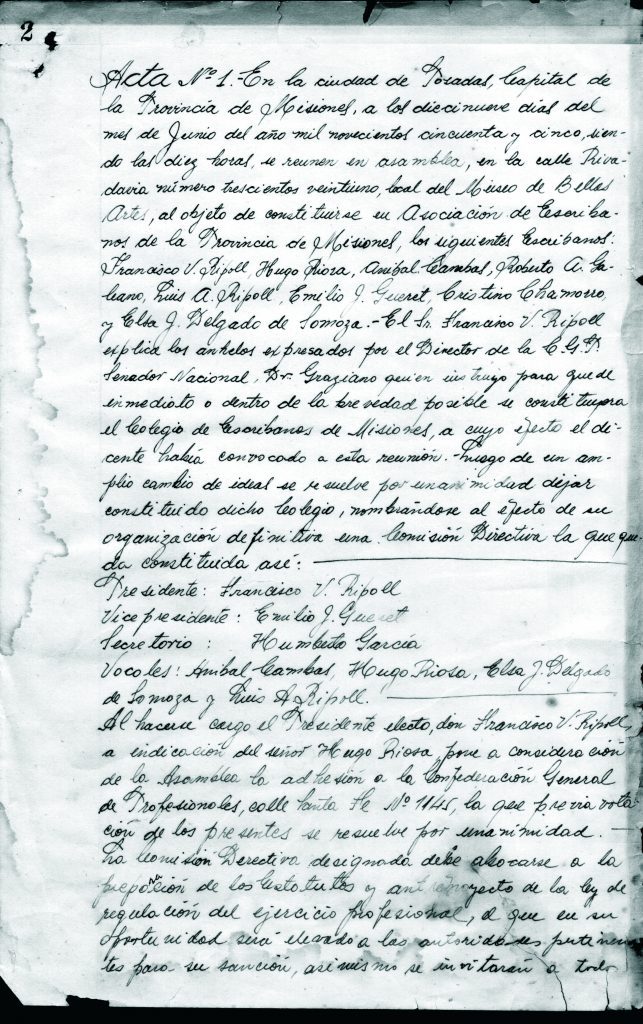 2
Acta Nº 1.- En la ciudad de Posadas, Capital de
la Provincia de Misiones, a los diecinueve días del
mes de Junio del año mil novecientos cincuenta y cinco, sien-
do las diez horas, se reunen en asamblea, en la calle Riva-
davia número trescientos veintiuno, local del Museo de Bellas
Artes, al objeto de constituirse en Asociación de Escriba-
nos de la Provincia de Misiones, los siguientes Escribanos:
Francisco V. Ripoll, Hugo Riosa, Anibal Cambas, Roberto A. Ga-
leano, Luis A. Ripoll, Emilio J. Gueret, Cristino Chamorro,
y Elsa J. Delgado de Somoza.- El Sr. Francisco V. Ripoll
explica los anhelos expresados por el Director de la C.G.P.
Senador Nacional, Dr. Graziano quien instruyo para que de
inmediato o dentro de la brevedad posible se constituyera
el Colegio de Escribanos de Misiones, a cuyo efecto el di-
cente había convocado a esta reunión.- Luego de un am-
plio cambio de ideas se resuelve por unanimidad dejar
constituído dicho Colegio, nombrándose al efecto de su
organización definitiva una Comisión Directiva la que que-
da constituida así:
Presidente: Francisco V. Ripoll
Vice presidente: Emilio J. Gueret
Secretario: Humberto García
Vocales: Anibal Cambas, Hugo Riosa, Elsa J. Delgado
de Somoza y Luis A. Ripoll.
Al hacerse cargo el Presidente electo, don Francisco V. Ripoll,
a indicación del señor Hugo Riosa, pone a consideración
de la Asamblea la adhesión a la Confederación General
de Profesionales, calle Santa Fe Nº 1145, la que previa vota
ción de los presentes se resuelve por unanimidad. -
La Comisión Directiva designada debe abocarse a la
preparación de los Estatutos y ante proyecto de la ley de
regulación del ejercicio profesional, el que en su
oportunidad será elevado a las autoridades pertinen-
tes para su sanción, asimismo se invitarán a todos